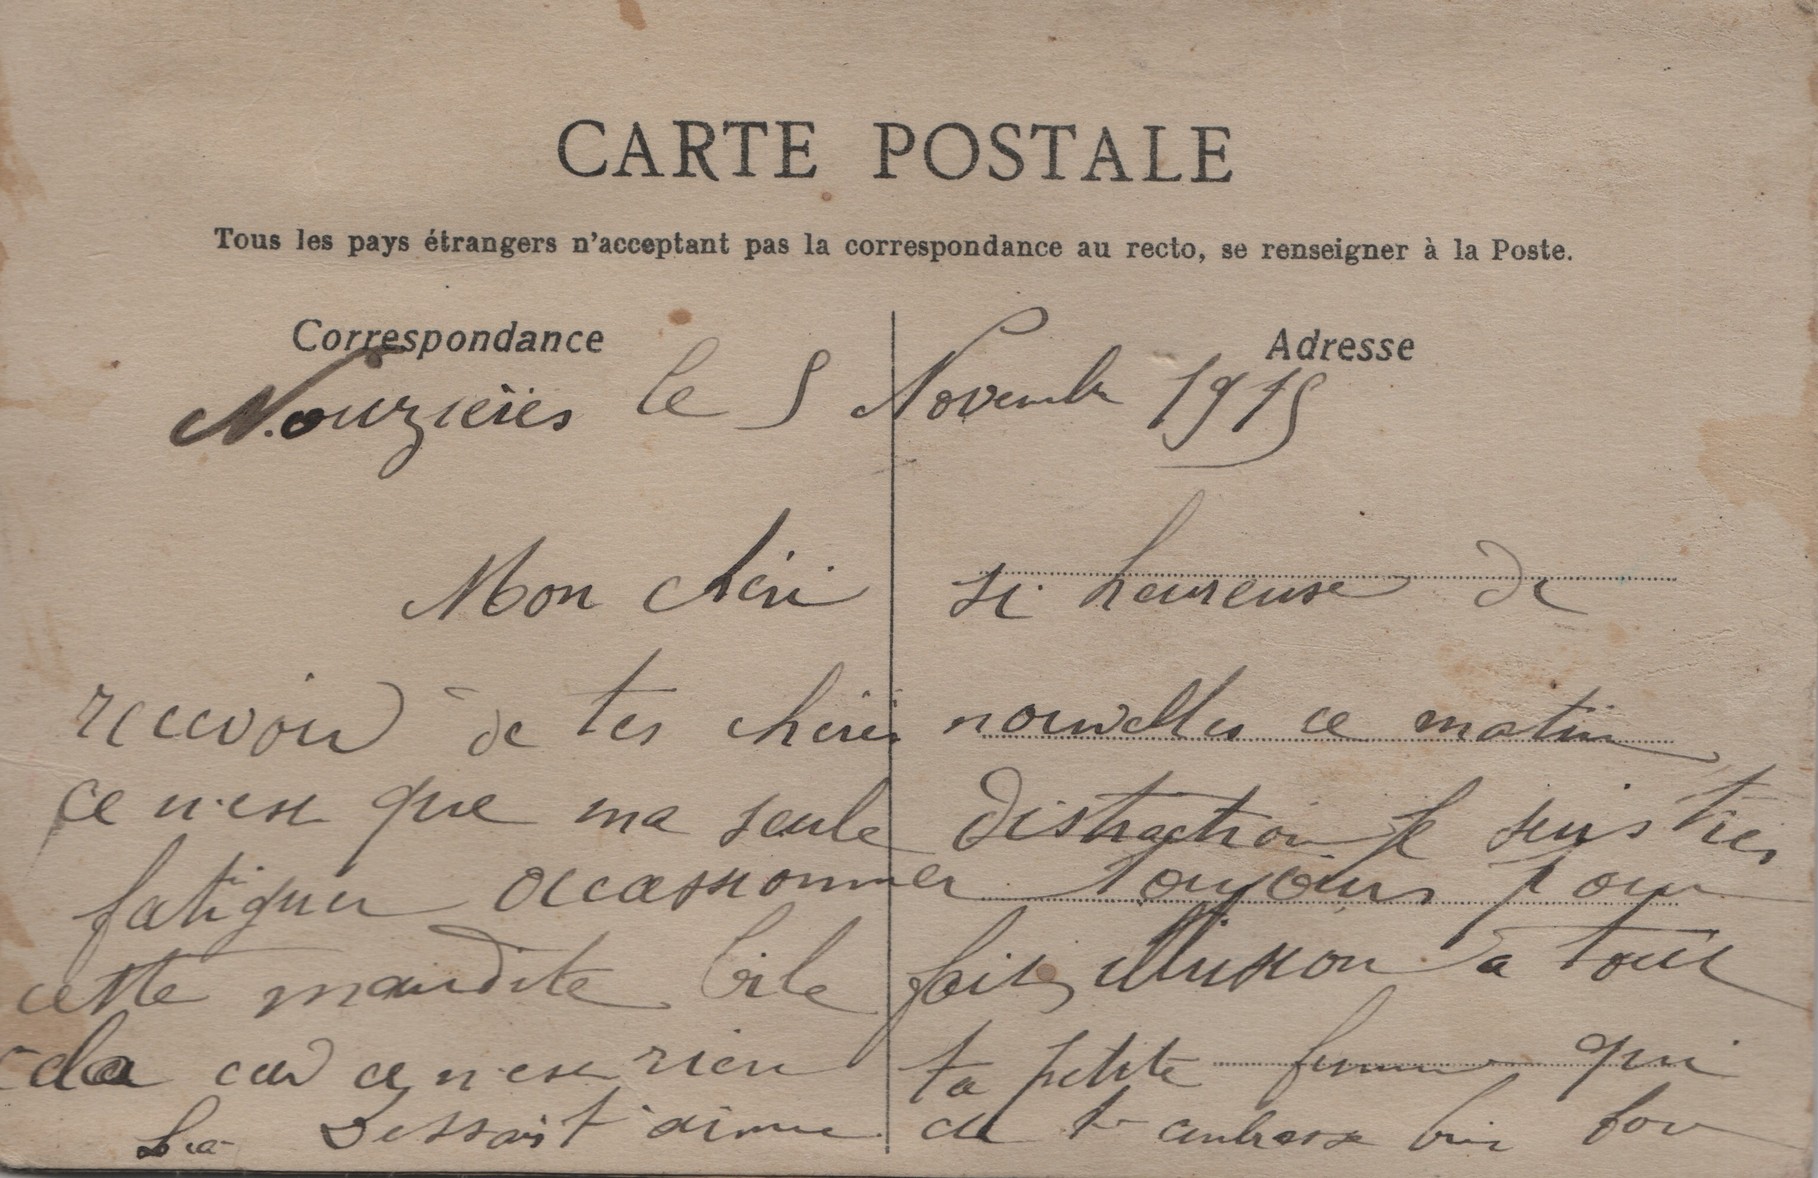 CARTE POSTALE
Tous les pays étrangers n'acceptant pas la correspondance au recto, se renseigner à la Poste.
Correspondance
Adresse
Nouzières le 5 Novembre 1915
Mon chéri si heureuse de
recevoir de tes chéries nouvelles ce matin
ce n'est que ma seule distraction je suis très
fatiguer occassionner toujours pour
cette maudite bile fait illusion a tout
cela car ce n'est rien ta petite femme qui
t'aime et t'embrasse bien for